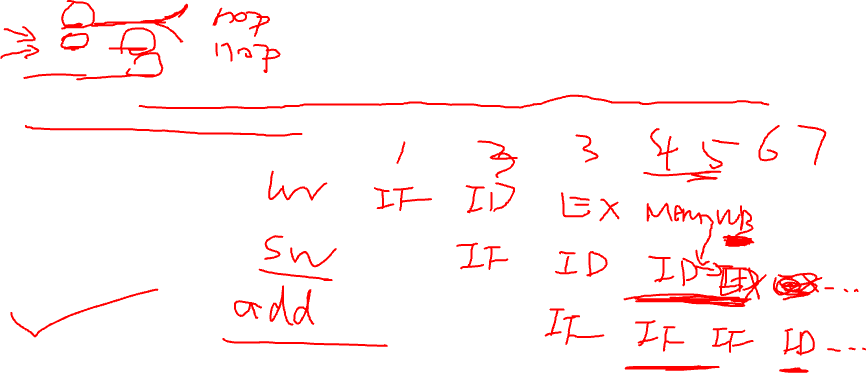 nop
nop
1 2 3 4 5 6 7
lw IF ID EX Mem WB
sw IF ID ID EX ...
add IF IF IF ID ...